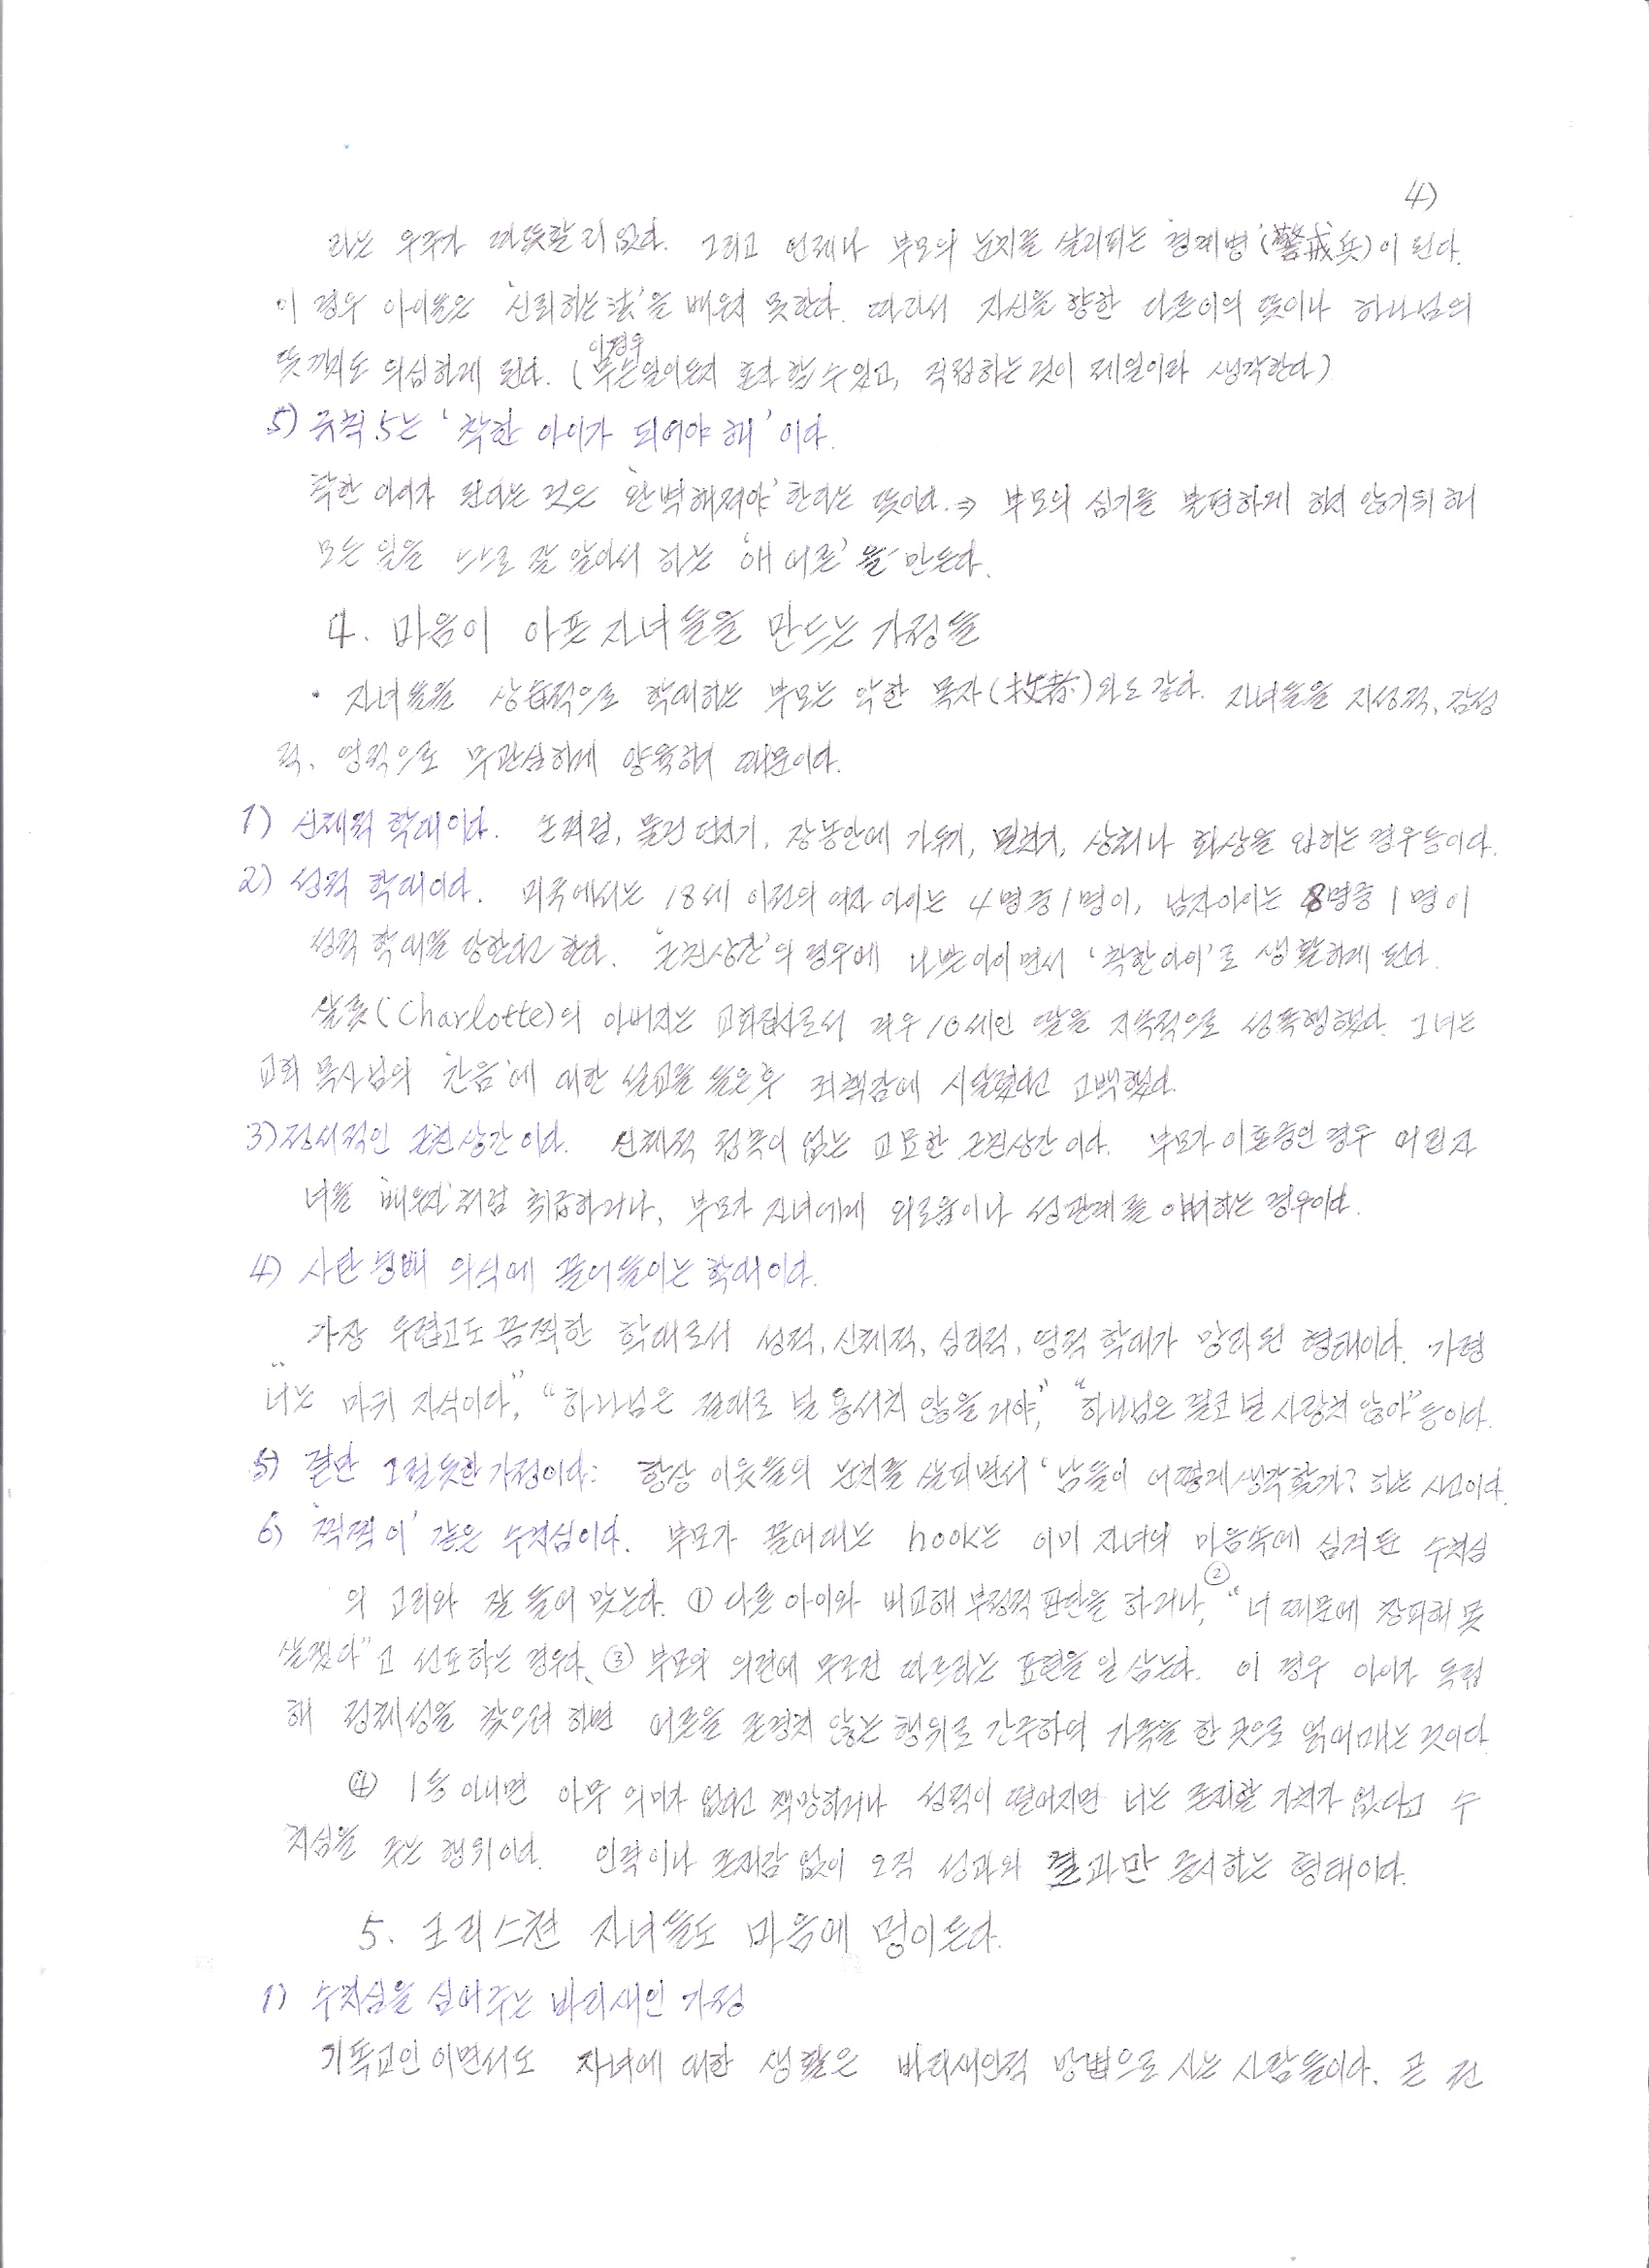 4)
라는 우주가 따뜻할 리 없다. 그리고 언제나 부모의 눈치를 살피되는 '경계병'(警戒兵)이 된다.
이 경우 아이들은 '신뢰하는 法'을 배우지 못한다. 따라서 자신을 향한 다른이의 뜻이나 하나님의
이경우
뜻까지도 의심하게 된다. (무슨일이든지 혼자 할 수 있고, 직접하는 것이 제일이라 생각한다)
5) 규칙 5는 '착한 아이가 되어야 해' 이다.
착한 아이가 된다는 것은 '완벽해져야' 한다는 뜻이다. ⇒ 부모의 심기를 불편하게 하지 않기위해
모든 일을 스스로 잘 알아서 하는 '애 어른'을 만든다.
4. 마음이 아픈 자녀들을 만드는 가정들
· 자녀들을 상습적으로 학대하는 부모는 악한 목자(牧者)와도 같다. 자녀들을 지성적, 감성
적, 영적으로 무관심하게 양육하기 때문이다.
1) 신체적 학대이다. 손찌검, 물건 던지기, 장농안에 가두기, 밀치기, 상처나 화상을 입히는 경우등이다.
2) 성적 학대이다. 미국에서는 18세 이전의 여자 아이는 4명중 1명이, 남자아이는 8명중 1명이
성적 학대를 당한다고 한다. '근친상간'의 경우에 나쁜아이면서 '착한아이'로 생활하게 된다.
샬롯(Charlotte)의 아버지는 교회집사로서 겨우 10세인 딸을 지속적으로 성폭행했다. 그녀는
교회 목사님의 '간음'에 대한 설교를 들은후 죄책감에 시달렸다고 고백했다.
3) 정서적인 근친상간이다. 신체적 접촉이 없는 교묘한 근친상간이다. 부모가 이혼중인 경우 어린자
녀를 '배우자'처럼 취급하거나, 부모가 자녀에게 외로움이나 성관계를 이야기하는 경우이다.
4) 사탄숭배 의식에 끌어들이는 학대이다.
가장 두렵고도 끔찍한 학대로서 성적, 신체적, 심리적, 영적 학대가 망라된 형태이다. 가령
"너는 마귀 자식이다", "하나님은 절대로 널 용서치 않을 거야", "하나님은 결코 널 사랑치 않아" 등이다.
5) 겉만 그럴듯한 가정이다: 항상 이웃들의 눈치를 살피면서 '남들이 어떻게 생각할까? 하는 사고이다.
6) '찍찍이' 같은 수치심이다. 부모가 끌어대는 hook는 이미 자녀의 마음속에 심겨진 수치심
의 고리와 잘 들어 맞는다. ① 다른 아이와 비교해 부정적 판단을 하거나, ② "너 때문에 창피해 못
살겠다"고 선포하는 경우다. ③ 부모의 의견에 무조건 따르라는 표현을 일삼는다. 이 경우 아이가 독립
해 정체성을 찾으려 하면 어른을 존경치 않는 행위로 간주하여 가족을 한 곳으로 얽어매는 것이다.
④ 1등 아니면 아무 의미가 없다고 책망하거나 성적이 떨어지면 너는 존재할 가치가 없다고 수
치심을 주는 행위이다. 인격이나 존재감 없이 오직 성과와 결과만 중시하는 형태이다.
5. 크리스천 자녀들도 마음에 멍이든다.
1) 수치심을 심어주는 바리새인 가정
기독교인이면서도 자녀에 대한 생활은 바리새인적 방법으로 사는 사람들이다. 곧 겉